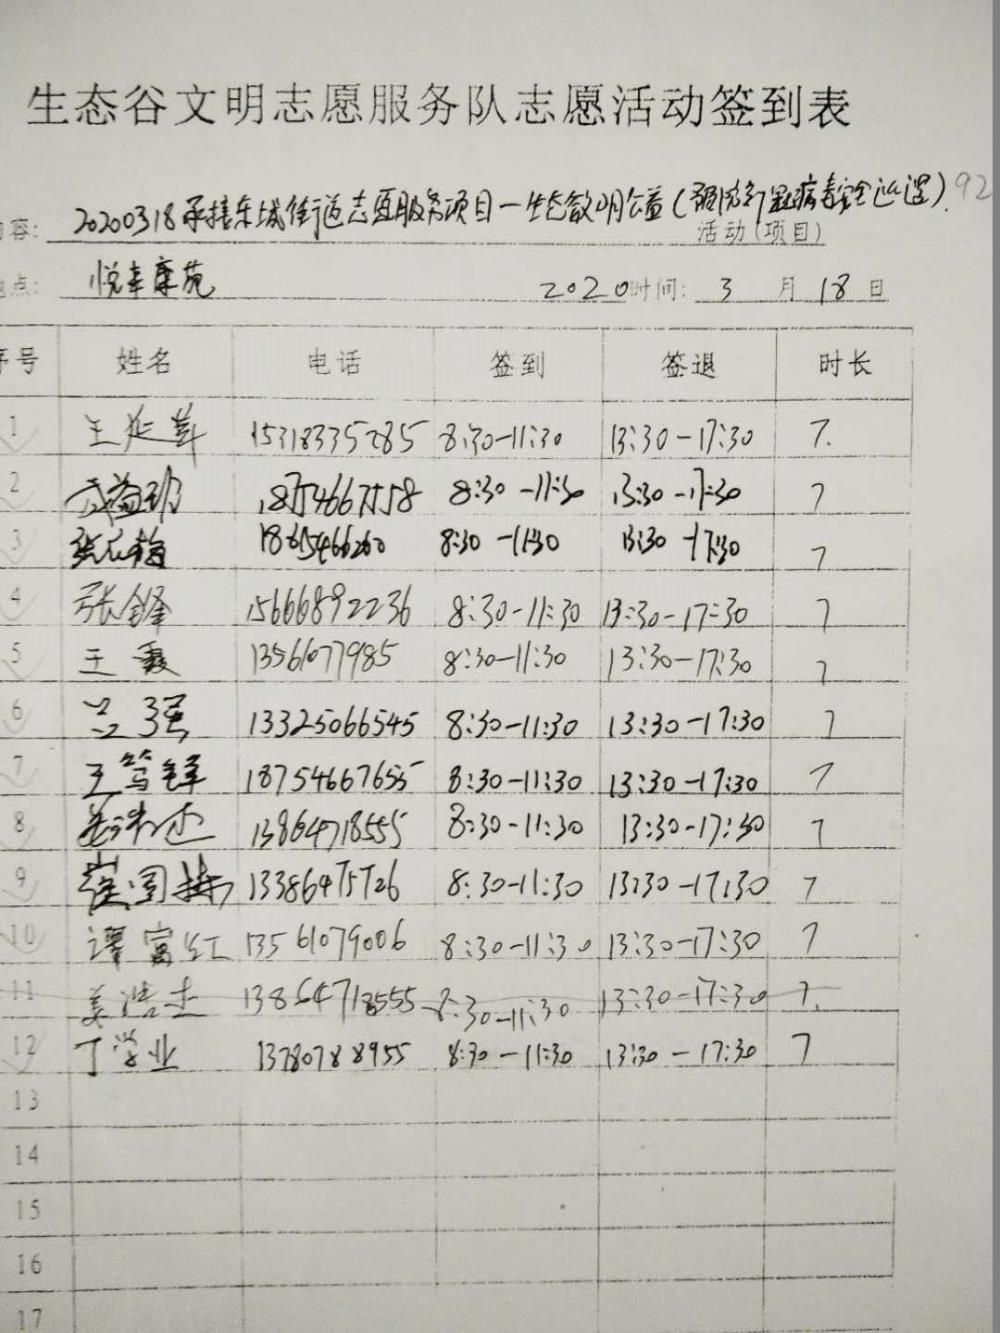 生态谷文明志愿服务队志愿活动签到表
容: 20200318承接东城街道志愿服务项目一生态文明公益(预防新冠病毒安全巡逻) 92
活动(项目)
点: 悦丰康苑 2020时间: 3 月 18 日
序号 姓名 电话 签到 签退 时长
1 王延 15318335285 8:30-11:30 13:30-17:30 7.
2 18754667558 8:30-11:30 13:30-17:30 7
3 张 梅 18615466260 8:30-11:30 13:30-17:30 7
4 张锋 15666892236 8:30-11:30 13:30-17:30 7
5 王 13561077985 8:30-11:30 13:30-17:30 7
6 兰强 13325066545 8:30-11:30 13:30-17:30 7
7 王笃锋 18754667655 8:30-11:30 13:30-17:30 7
8 姜浩杰 13864718555 8:30-11:30 13:30-17:30 7
9 崔国 13386475726 8:30-11:30 13:30-17:30 7
10 谭富红 13561079006 8:30-11:30 13:30-17:30 7
11 姜浩杰 13864718555 8:30-11:30 13:30-17:30 7.
12 丁学业 13780788955 8:30-11:30 13:30-17:30 7
13
14
15
16
17